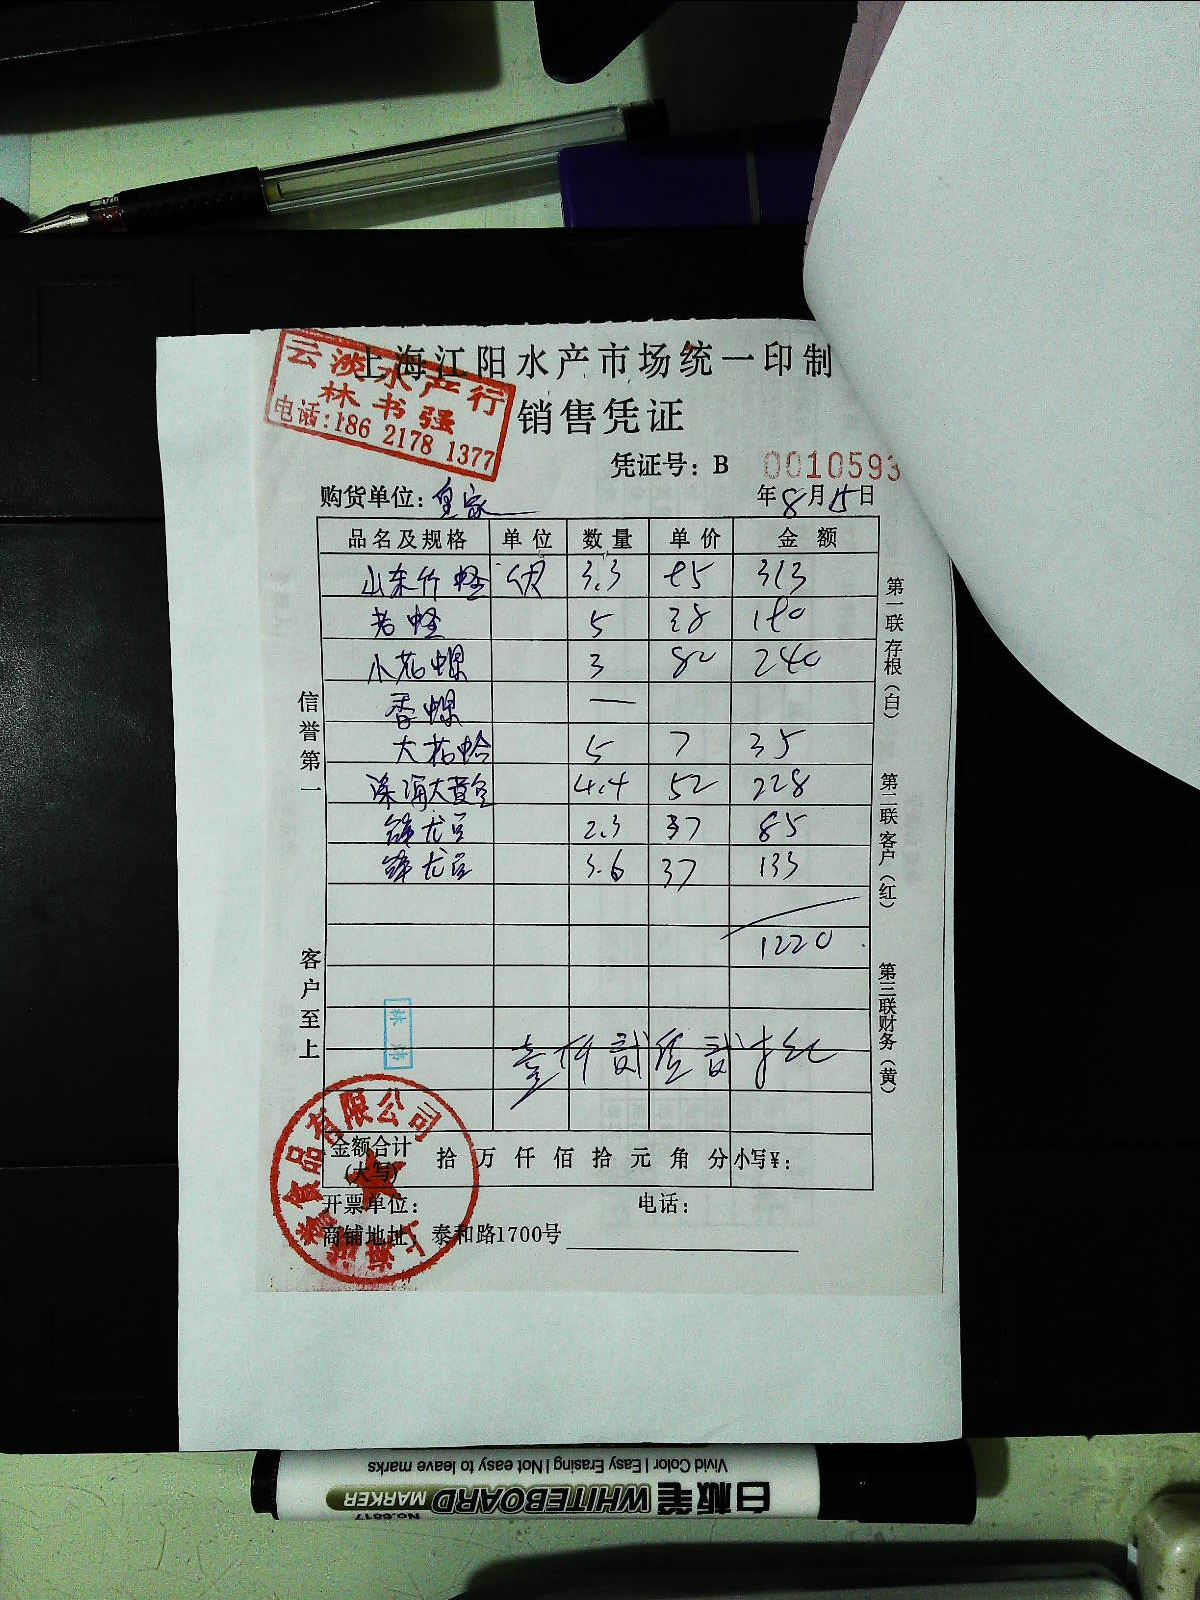 云淡水产行
林书强
电话:186 2178 1377
上海江阳水产市场统一印制
销售凭证
凭证号：B 0010593
购货单位：皇家 年8月15日
品名及规格 单位 数量 单价 金额
山东竹蛏 3.3 95 313
老蛏 5 38 190
小花螺 3 80 240
香螺 —
大花蛤 5 7 35
深海大黄鱼 4.4 52 228
2.3 37 85
3.6 37 133
1220
信誉第一
客户至上
第一联存根（白）
第二联客户（红）
第三联财务（黄）
林炜
金额合计（大写） 拾万仟佰拾元角分 小写¥：
开票单位： 电话：
商铺地址：泰和路1700号
食品有限公司
Vivid Color | Easy Erasing | Not easy to leave marks
白板笔 WHITEBOARD MARKER
No.6817